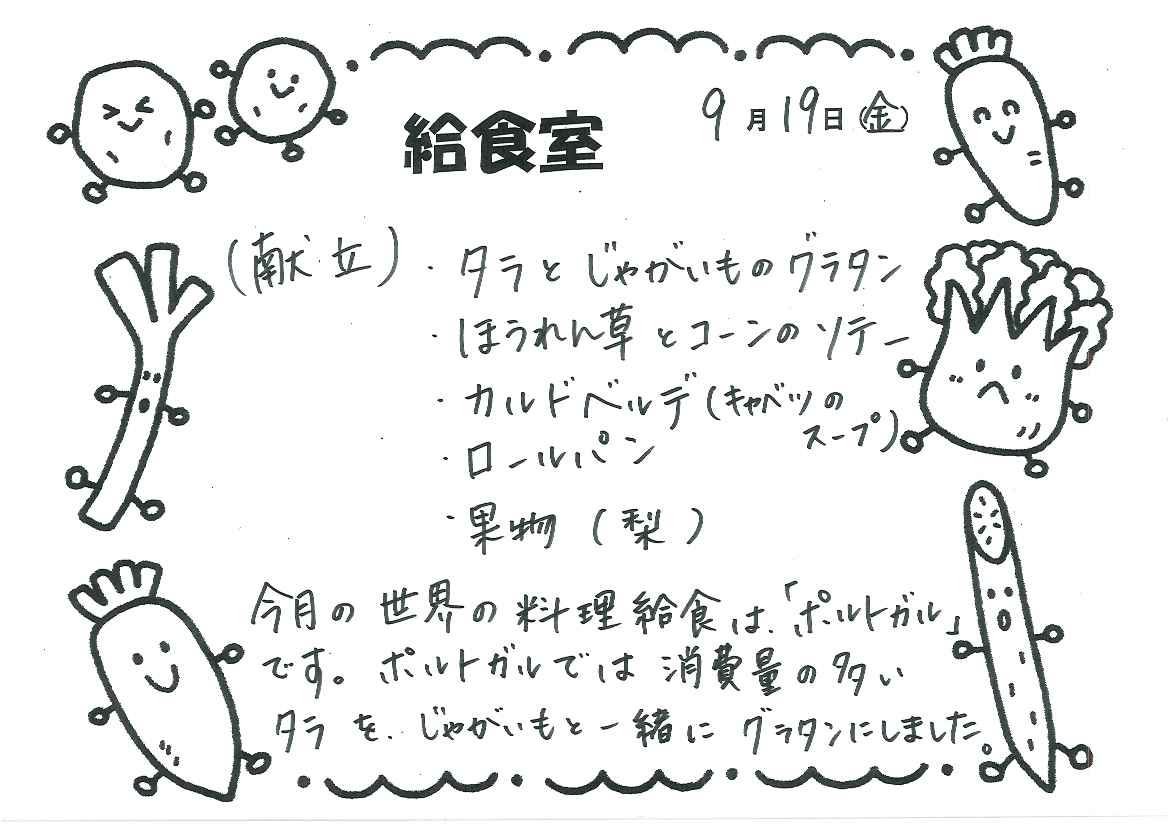 給食室
9月19日(金)
(献立)・タラとじゃがいものグラタン
・ほうれん草とコーンのソテー
・カルドベルデ(キャベツの
スープ)
・ロールパン
・果物(梨)
今月の世界の料理給食は、「ポルトガル」
です。ポルトガルでは消費量の多い
タラを、じゃがいもと一緒にグラタンにしました。